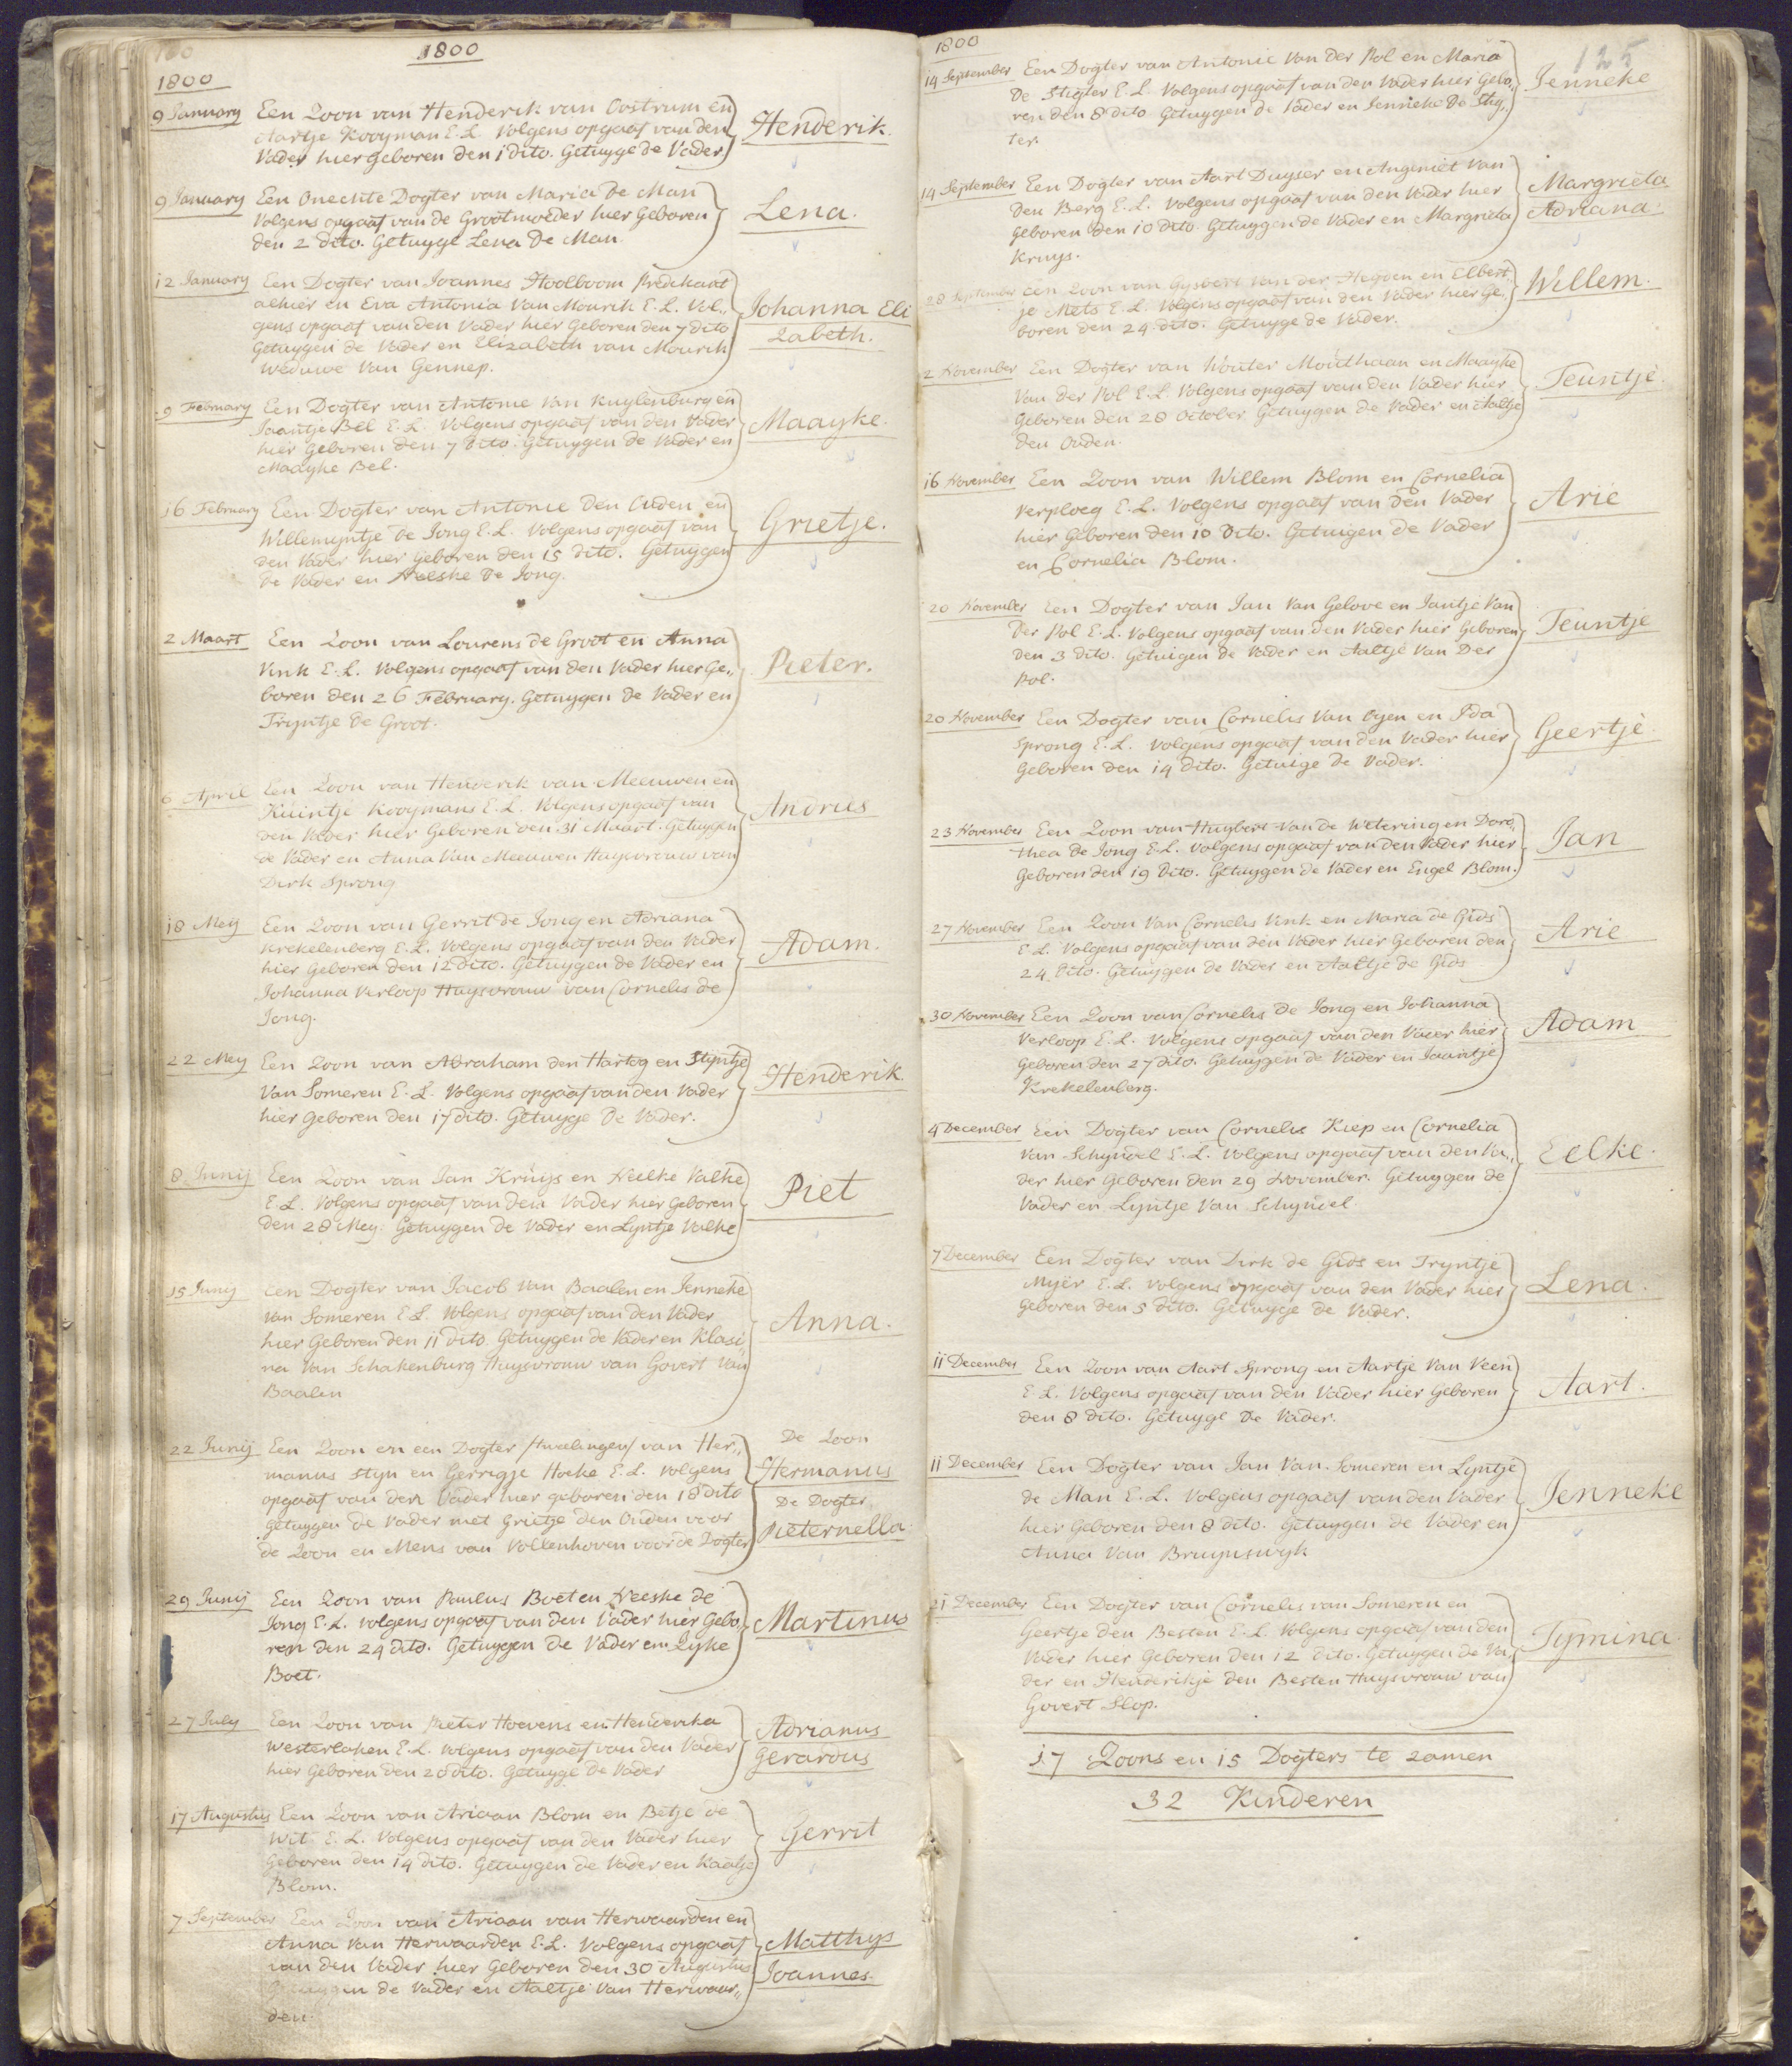 1800
1800
9 January Een Zoon van Henderik van Oostrum en
Aartje Kooyman E.L. Volgens opgaaf van den
Vader hier geboren den 1 dito. Getuyge de Vader
Henderik.
9 January Een Onechte Dogter van Maria De Man
Volgens opgaaf van de Grootmoeder hier Geboren
den 2 dito. Getuyge Lena De Man.
Lena.
12 January Een Dogter van Joannes Hoolboom Predekant
alhier en Eva Antonia Van Mourik E.L. Vol„
gens opgaaf van den Vader hier Geboren den 7 dito
Getuygen de Vader en Elizabeth van Mourik
Weduwe Van Gennep.
Johanna Eli
Zabeth.
9 February Een Dogter van Antonie Van Kuylenburg en
Jaantje Bel E.L. Volgens opgaaf van den Vader
hier Geboren den 7 Dito. Getuygen de Vader en
Maayke Bel.
Maayke.
16 February Een Dogter van Antonie Den Ouden en
Willemyntje De Jong E.L. Volgens opgaaf van
den Vader hier Geboren den 15 dito. Getuygen
De Vader en Neeske De Jong.
Grietje.
2 Maart Een Zoon van Lourens de Groot en Anna
Vink E.L. Volgens opgaaf van den Vader hier Ge„
boren den 26 February. Getuygen De Vader en
Tryntje De Groot.
Pieter.
6 April Een Zoon van Henderik van Meeuwen en
Kuintje Kooymans E.L. Volgens opgaaf van
den Vader hier Geboren den 31 Maart. Getuygen
de Vader en Anna Van Meeuwen Huysvrouw van
Dirk Sprong
Andries
18 Mey Een Zoon van Gerrit de Jong en Adriana
Krekelenberg E.L. Volgens opgaaf van den Vader
hier Geboren den 12 dito. Getuygen de Vader en
Johanna Verloop Huysvrouw van Cornelis de
Jong.
Adam.
22 Mey Een Zoon van Abraham den Hartog en Styntje
Van Someren E.L. Volgens opgaaf van den Vader
hier Geboren den 17 dito. Getuyge De Vader.
Henderik.
8 Junij Een Zoon van Jan Kruijs en Neelke Valke
E.L. Volgens opgaaf van den Vader hier Geboren
den 28 Mey. Getuygen de Vader en Lyntje Valke
Piet
15 Junij Een Dogter van Jacob Van Baalen en Jenneke
Van Someren E.L. Volgens opgaaf van den Vader
hier Geboren den 11 dito. Getuygen de Vader en Klasi„
na Van Schakenburg Huysvrouw van Govert Van
Baalen
Anna.
22 Junij Een Zoon en een Dogter /twelingen/ van Her„
manus Styn en Gerrigje Hoeke E.L. Volgens
opgaaf van den Vader hier geboren den 18 dito
getuygen de Vader met Grietje den Ouden voor
de Zoon en Mens van Vollenhoven voor de Dogter
De Zoon
Hermanus
De Dogter
Pieternella.
29 Junij Een Zoon van Paulus Boet en Neeske de
Jong E.L. volgens opgaaf van den Vader hier Gebo„
ren den 24 dito. Getuygen de Vader en Zyke
Boet.
Martinus
27 July Een Zoon van Pieter Hoevens en Henderika
Westerlaken E.L. Volgens opgaaf van den Vader
hier Geboren den 20 dito. Getuyge De Vader
Adrianus
Gerardus
17 Augustus Een Zoon van Ariaan Blom en Betje de
Wit E.L. Volgens opgaaf van den Vader hier
Geboren den 14 dito. Getuygen de Vader en Kaatje
Blom.
Gerrit
7 September Een Zoon van Ariaan van Herwaarden en
Anna Van Herwaarden E.L. Volgens opgaaf
van den Vader hier Geboren den 30 Augustus
Getuygen de Vader en Aaltje Van Herwaar„
den.
Matthys
Joannes.
1800
125
14 September Een Dogter van Antonie Van der Pol en Maria
De Stigter E.L. Volgens opgaaf van den Vader hier Gebo„
ren den 8 dito. Getuygen de Vader en Jenneke De Stig„
ter.
Jenneke
14 September Een Dogter van Aart Duyser en Angeniet Van
Den Berg E.L. Volgens opgaaf van den Vader hier
Geboren den 10 dito. Getuygen de Vader en Margrieta
Kruys.
Margrieta
Adriana.
28 September Een Zoon van Gysbert Van der Heyden en Elbert„
je Mets E.L. Volgens opgaaf van den Vader hier Ge„
boren den 24 dito. Getuyge de Vader.
Willem.
2 November Een Dogter van Wouter Moudhaan en Maayke
Van der Pol E.L. Volgens opgaaf van den Vader hier
Geboren den 28 October Getuygen de Vader en Aaltje
den Ouden.
Teuntje.
16 November Een Zoon van Willem Blom en Cornelia
Verploeg E.L. Volgens opgaaf van den Vader
hier Geboren den 10 Dito. Getuigen de Vader
en Cornelia Blom.
Arie
20 November Een Dogter van Jan Van Gelove en Jantje Van
Der Pol E.L. Volgens opgaaf van den Vader hier Geboren
den 3 dito. Getuigen de Vader en Aaltje Van Der
Pol.
Teuntje
20 November Een Dogter van Cornelis Van Oyen en Ida
Sprong E.L. Volgens opgaaf van den Vader hier
Geboren den 14 dito. Getuige de Vader.
Geertje.
23 November Een Zoon van Huybert Van de Wetering en Doro„
thea De Jong E.L. Volgens opgaaf van den Vader hier
Geboren den 19 Dito. Getuygen de Vader en Engel Blom.
Jan
27 November Een Zoon Van Cornelis Vink en Maria de Gids
E.L. Volgens opgaaf van den Vader hier Geboren den
24 dito. Getuygen de Vader en Aaltje de Gids
Arie
30 November Een Zoon van Cornelis de Jong en Johanna
Verloop E.L. Volgens opgaaf van den Vader hier
Geboren den 27 dito. Getuygen de Vader en Jaantje
Krekelenberg.
Adam
4 December Een Dogter van Cornelis Kiep en Cornelia
Van Schyndel E.L. Volgens opgaaf van den Va„
der hier Geboren den 29 November. Getuygen de
Vader en Lyntje Van Schyndel.
Eelke.
7 December Een Dogter van Dirk de Gids en Tryntje
Myër E.L. Volgens opgaaf van den Vader hier
Geboren den 5 dito. Getuyge de Vader.
Lena.
11 December Een Zoon van Aart Sprong en Aartje Van Veen
E.L. Volgens opgaaf van den Vader hier Geboren
den 8 dito. Getuyge De Vader.
Aart.
11 December Een Dogter van Jan Van Someren en Lyntje
de Man E.L. Volgens opgaaf van den Vader
hier Geboren den 8 dito. Getuygen de Vader en
Anna Van Bruynswyk
Jenneke
21 December Een Dogter van Cornelis van Someren en
Geertje den Besten E.L. Volgens opgaaf van den
Vader hier Geboren den 12 dito. Getuygen de Va„
der en Henderikje den Besten Huysvrouw van
Govert Slop.
Tymina.
17 Zoons en 15 Dogters te zamen
32 Kinderen